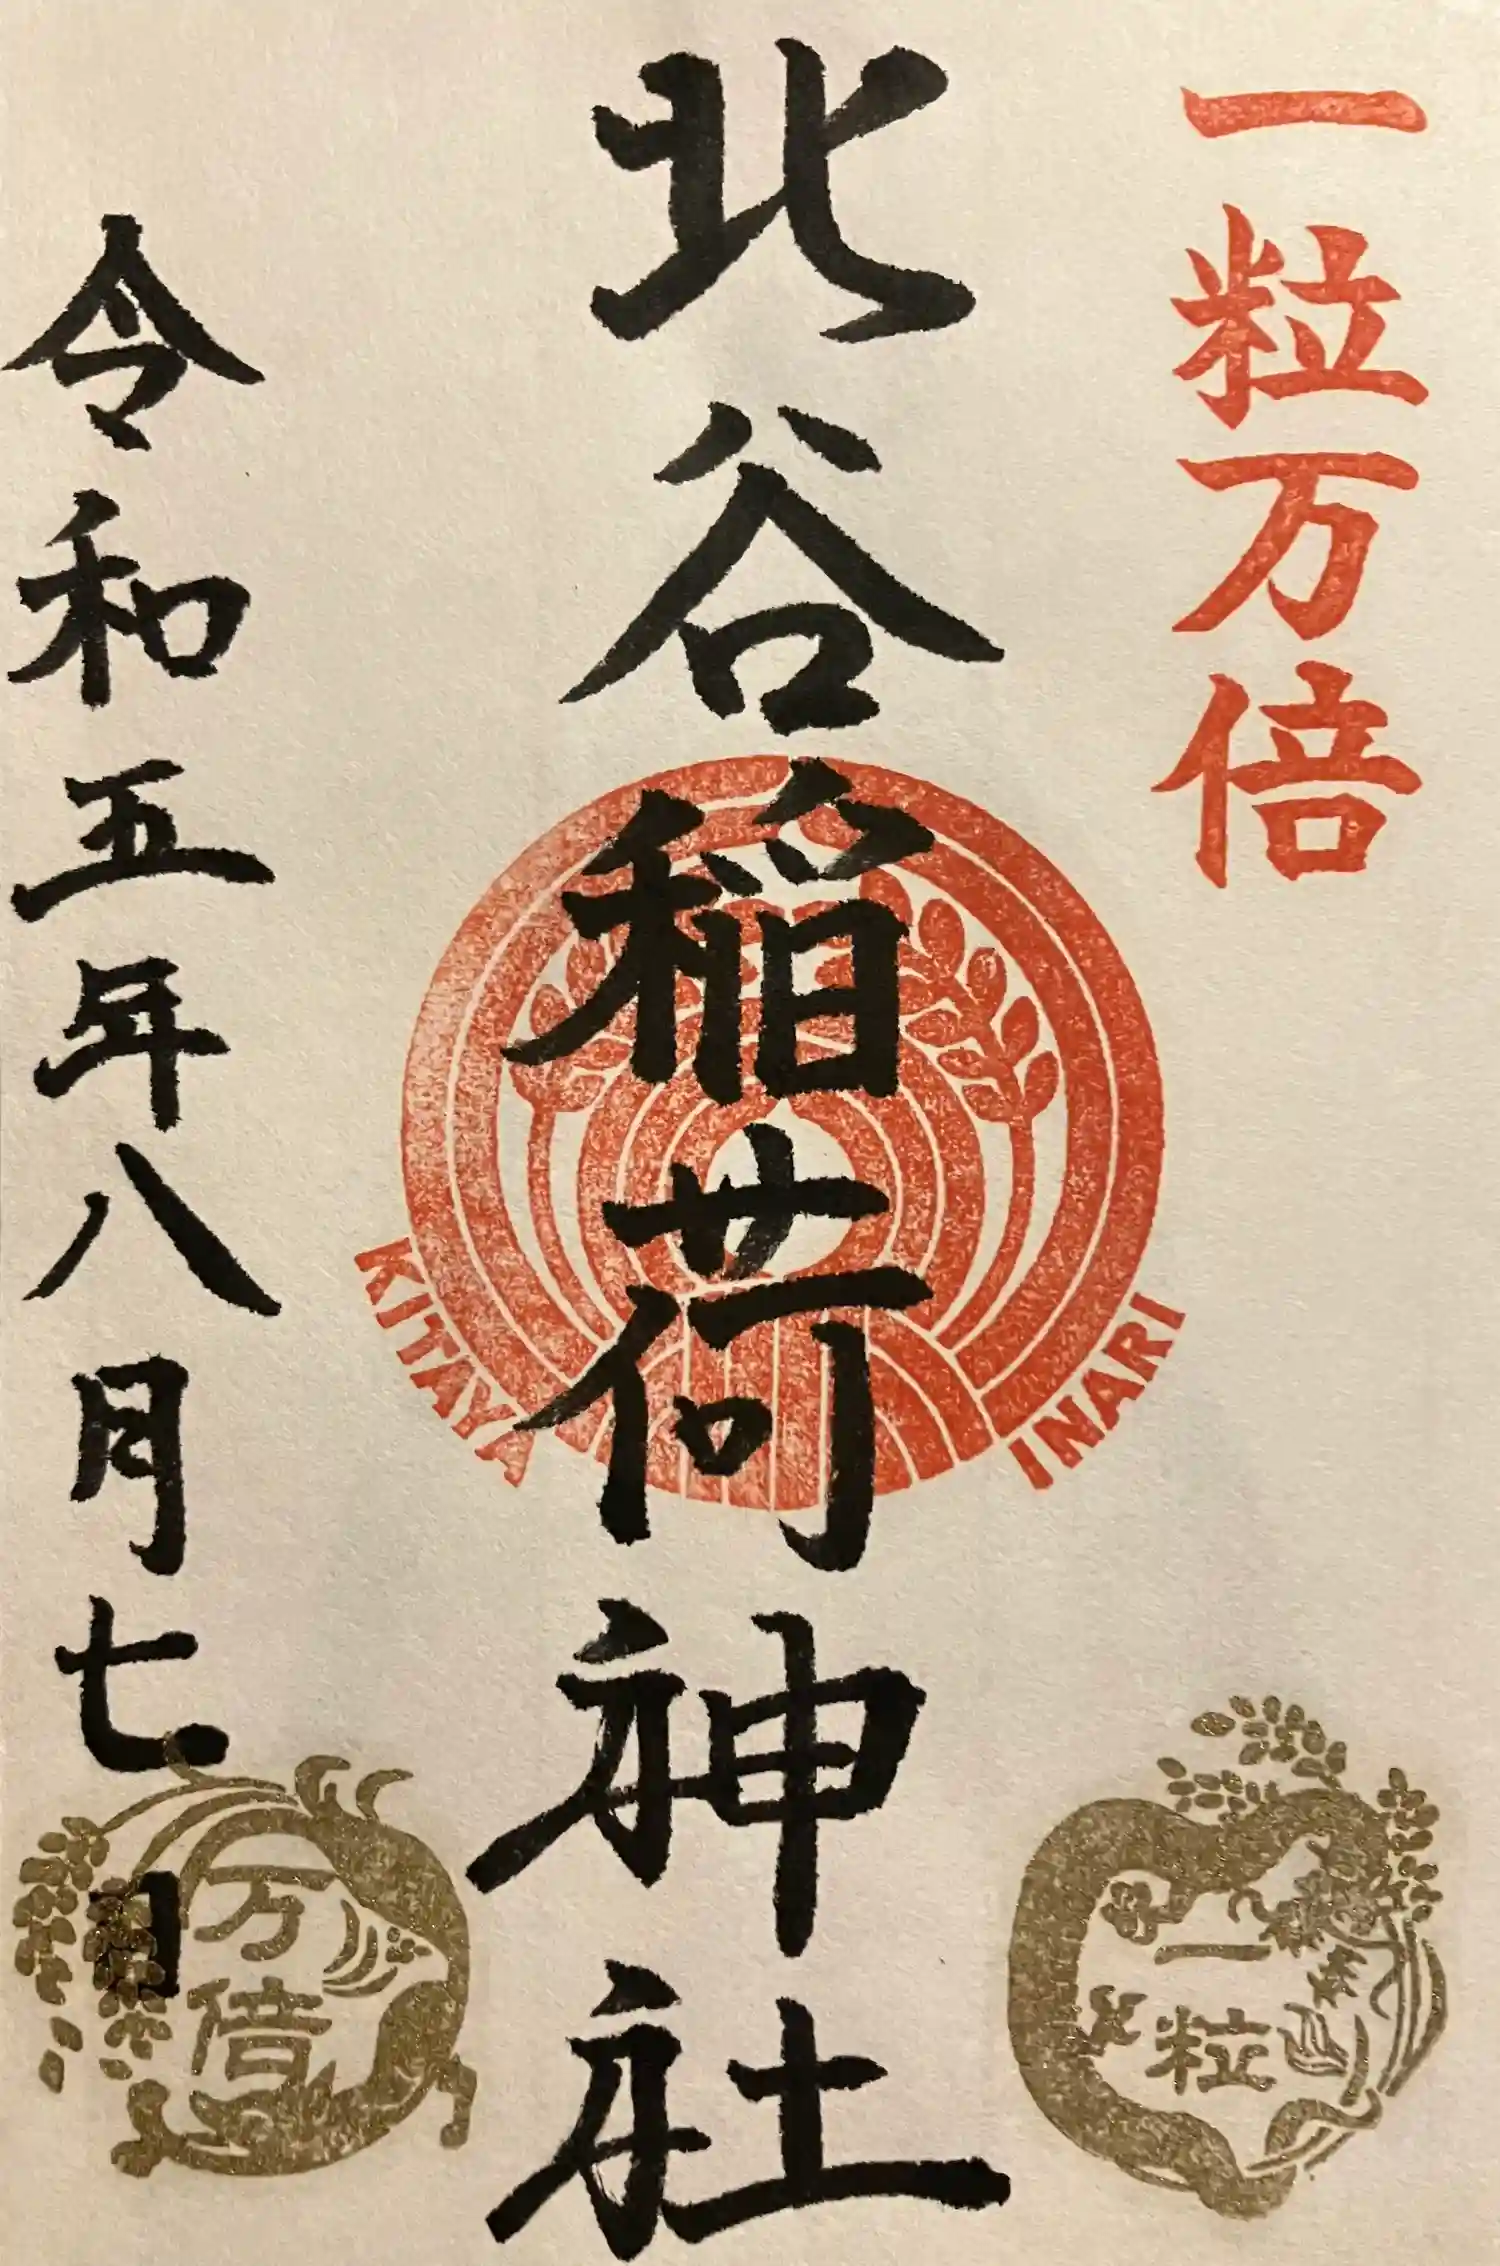 一粒万倍
北谷稲荷神社
KITAYA INARI
令和五年八月七日
一粒
万倍